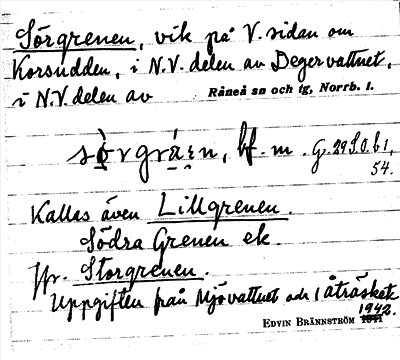 Sörgrenen, vik på V. sidan om
Korsudden, i N.V. delen av Degervattnet,
i N.V. delen av Råneå sn och tg, Norrb. l.
bf. m. G. 29 S.O. b 1,
54.
Kallas även Lillgrenen.
Södra Grenen ek.
Jfr. Storgrenen.
Uppgiften från Mjövattnet och Åträsket
EDVIN BRÄNNSTRÖM 1942.